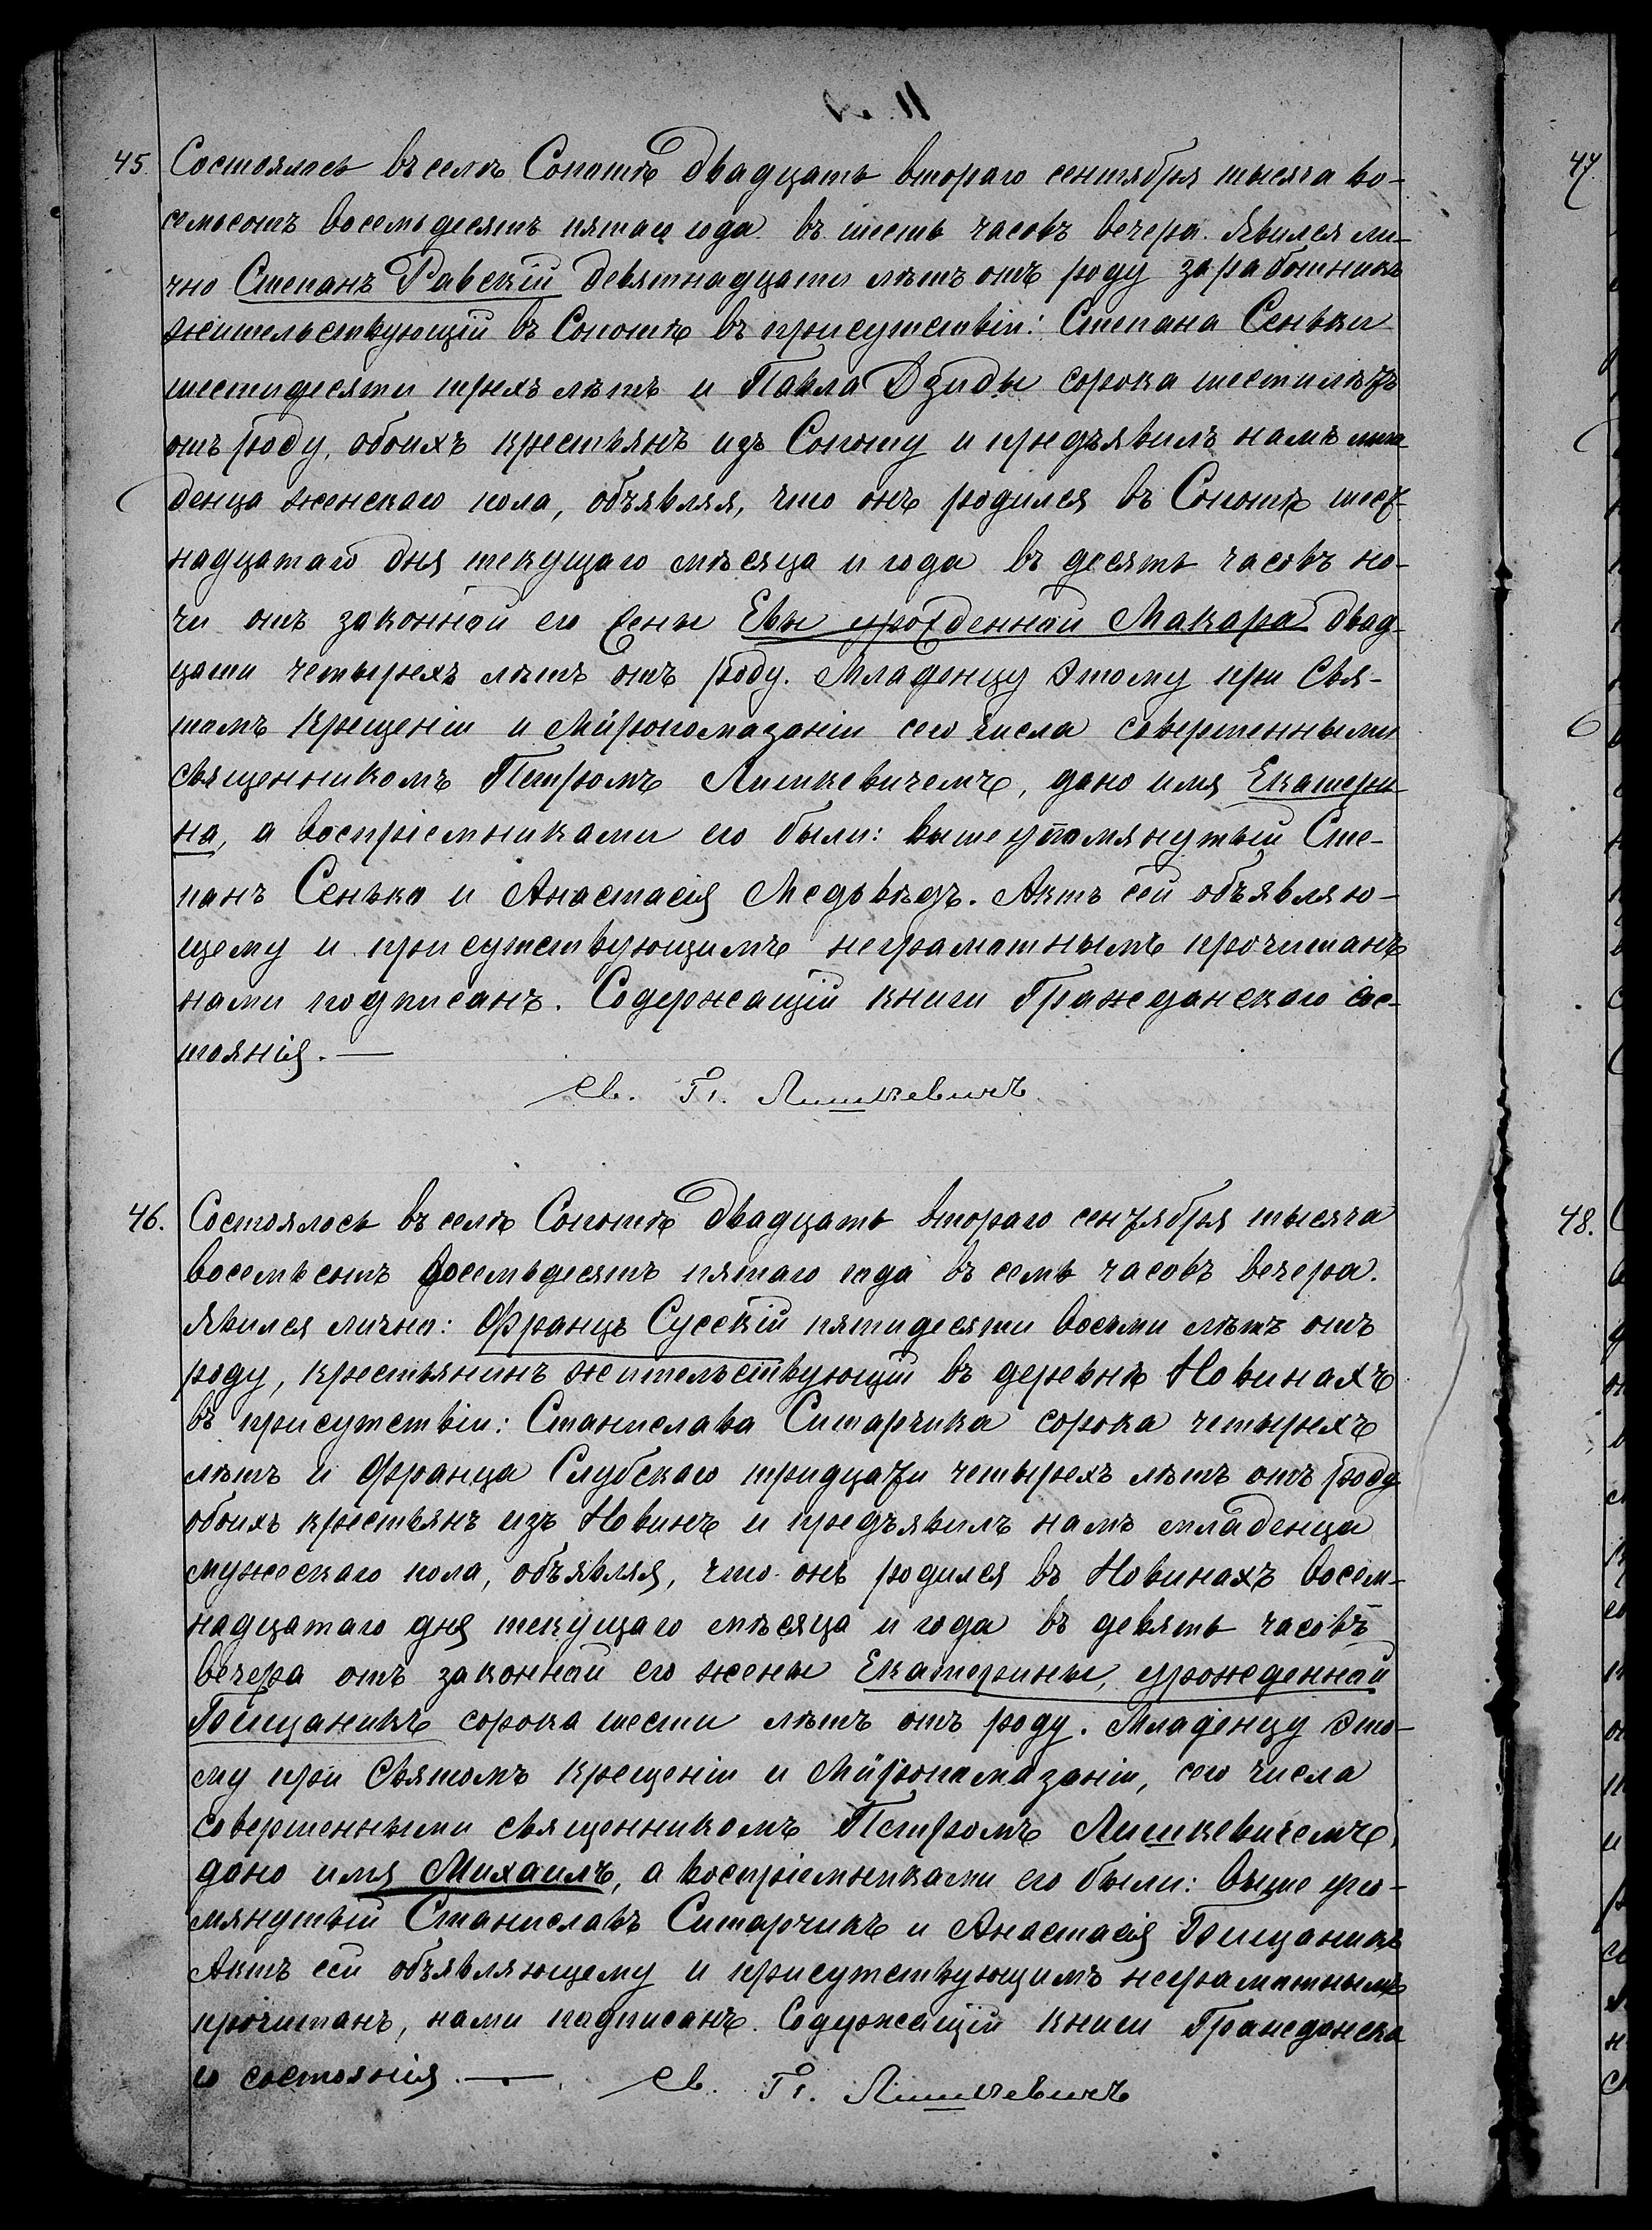 45. Состоялось въ селѣ Сопотѣ двадцать втораго сентября тысяча во-
семьсотъ восемьдесятъ пятаго года въ шесть часовъ вечера. Явился ли-
чно Степанъ Равскій девятнадцати лѣтъ отъ роду заработникъ
жительствующій въ Сопотѣ въ присутствіи: Степана Сеньки
шестидесяти трехъ лѣтъ и Павла Дзиды сорока шести лѣтъ
отъ роду, обоихъ крестьянъ изъ Сопоту и предъявилъ намъ мла-
денца женскаго пола, объявляя, что онъ родился въ Сопотѣ шест-
надцатаго дня текущаго мѣсяца и года въ десять часовъ но-
чи отъ законной его жены Евы урожденной Макара двад-
цати четырехъ лѣтъ отъ роду. Младенцу этому при Свя-
томъ Крещеніи и Мѵропомазаніи сего числа совершенными
священникомъ Петромъ Лишкевичемъ, дано имя Екатери-
на, а воспріемниками его были: вышеупомянутый Сте-
панъ Сенько и Анастасія Медвѣдъ. Актъ сей объявляю-
щему и присутствующимъ неграмотнымъ прочитанъ
нами подписанъ. Содержащій книги Гражданскаго сос-
тоянія. —
Св. П. Лишкевичъ
46. Состоялось въ селѣ Сопотѣ двадцать втораго сентября тысяча
восемьсотъ восемьдесятъ пятаго года въ семь часовъ вечера.
Явился лично: Францъ Сусскій пятидесяти восьми лѣтъ отъ
роду, крестьянинъ жительствующій въ деревнѣ Новинахъ
въ присутствіи: Станислава Ситарчика сорока четырехъ
лѣтъ и Франца Слубскаго тридцати четырехъ лѣтъ отъ роду
обоихъ крестьянъ изъ Новинъ и предъявилъ намъ младенца
мужескаго пола, объявляя, что онъ родился въ Новинахъ восем-
надцатаго дня текущаго мѣсяца и года въ девять часовъ
вечера отъ законной его жены Екатерины, урожденной
Гонцаникъ сорока шести лѣтъ отъ роду. Младенцу это-
му при Святомъ Крещеніи и Мѵропомазаніи, сего числа
совершенными священникомъ Петромъ Лишкевичемъ,
дано имя Михаилъ, а воспріемниками его были: выше упо-
мянутый Станиславъ Ситарчикъ и Анастасія Гонцаникъ
Актъ сей объявляющему и присутствующимъ неграмотнымъ
прочитанъ, нами подписанъ. Содержащій книги Гражданска
го состоянія. — Св. П. Лишкевичъ
47.
48.